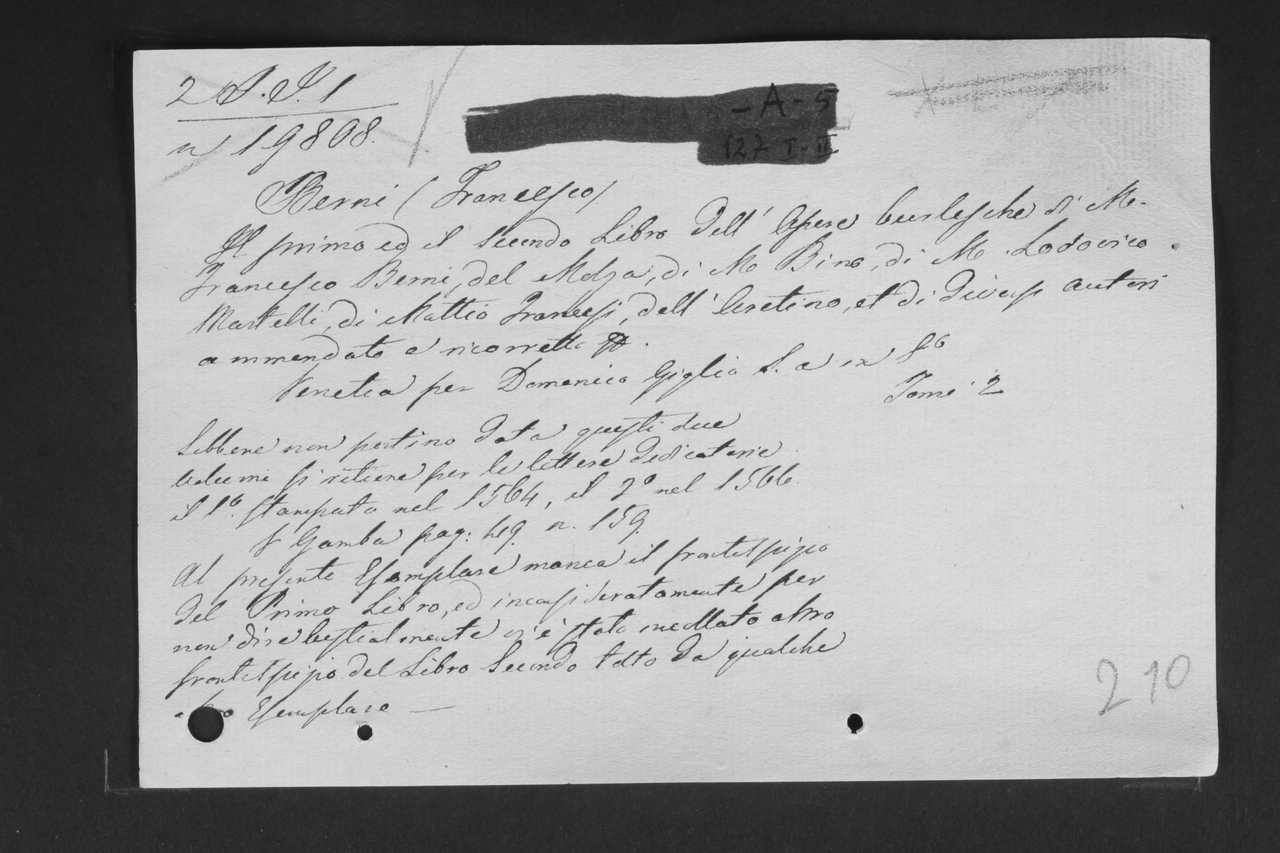 2 S. P. 1
n 19808.
- A - 5
127 I - II
Berni (Francesco)
Il primo ed il secondo Libro dell' Opere burlesche di M.
Francesco Berni, del Molza, di M. Bino, di M. Lodovico
Martelli, di Mattio Francesi, dell' Aretino, et di diversi autori
ammendato e ricorretto.
Venetia per Domenico Giglio S. a in 8°
Tomi 2
Sebbene non portino data questi due
volumi si ritiene per le lettere dedicatorie
il 1°. stampato nel 1564, il 2° nel 1566.
V Gamba pag: 49. n. 159.
Al presente Esemplare manca il frontespizio
del Primo Libro, ed inconsideratamente per
non dire bestialmente vi è stato incollato altro
frontespizio del Libro Secondo tolto da qualche
altro Esemplare —
210